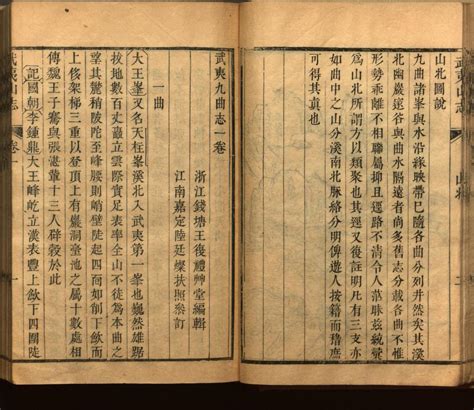 武夷山志
山北
山北圖說
九曲諸峯與水沿緣映帶已隨各曲分列井然矣其溪
北幽巖邃谷與曲水隔遠者尚多舊志分載各曲不惟
形勢乖離不相聯屬抑且逕路不清令人茫昧茲統彚
爲山北所謂方以類也其逕又後註明凡北山名勝
如曲中之山分溪南北脈絡分明俾遊人
可得其眞也
武夷九曲志一卷
浙江錢塘王復禮艸堂編輯
江南嘉定陸廷燦扶照叅訂
一曲
大王峯又名天柱峯溪北入武夷第一峯也巍然雄踞
拔地數百丈巍立雲際實足表率全山不徒爲本曲之
望其驁稍陂陀至峰腰則峭壁陡起四面如削下
上俊架梯三重以登頂上有巖洞臺池之屬十數處相
傳魏王子騫與張湛輩十三人辟穀於此
記國朝李鍾龍大王峰屹立漢表豐上歛下四圍陡
武夷山志
卷一